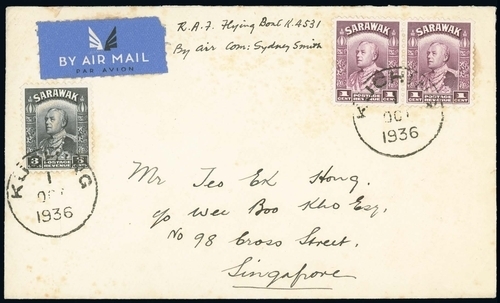 BY AIR MAIL
PAR AVION
R.A.F Flying Boat K.4531
By air Com: Sydney Smith
SARAWAK
1 CENT POSTAGE REVENUE 1 CENT
SARAWAK
1 CENT POSTAGE REVENUE 1 CENT
KUCHING
OCT
1936
SARAWAK
3 POSTAGE REVENUE
KUCHING
1
OCT
1936
Mr Teo Ek Hong.
c/o Wee Boo Kho Esq.
No 98 Cross Street.
Singapore